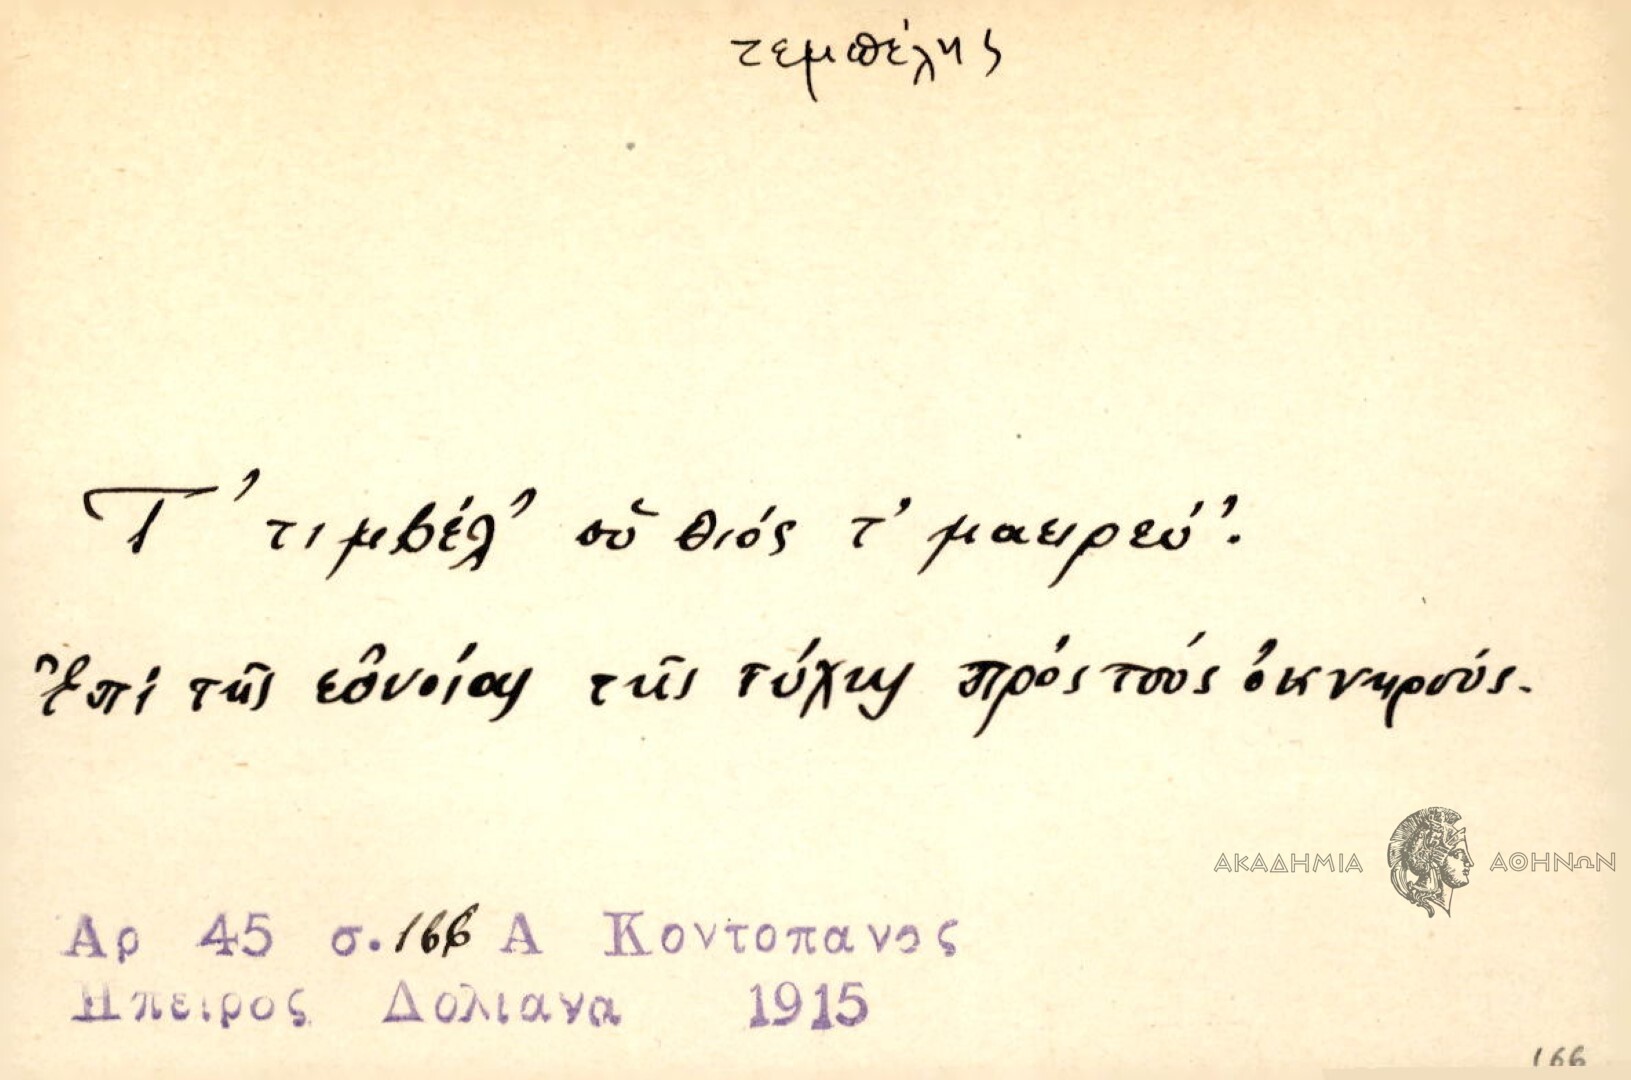 τεμπέλης
Τ' τιμβέλ' οὑ θιός τ' μαειρεύ'.
Ἐπί τῆς εὐνοίας τῆς τύχης πρός τούς ὀκνηρούς.
ΑΚΑΔΗΜΙΑ ΑΘΗΝΩΝ
Αρ 45 σ. 166 Α Κοντοπανος
Ηπειρος Δολιανα 1915
166